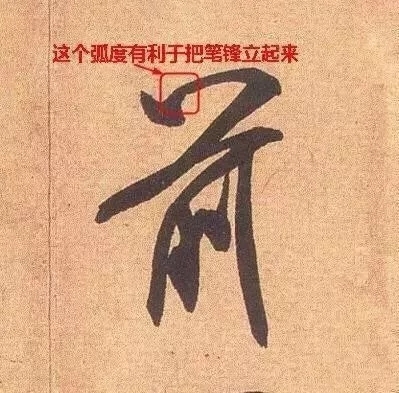 这个弧度有利于把笔锋立起来
前